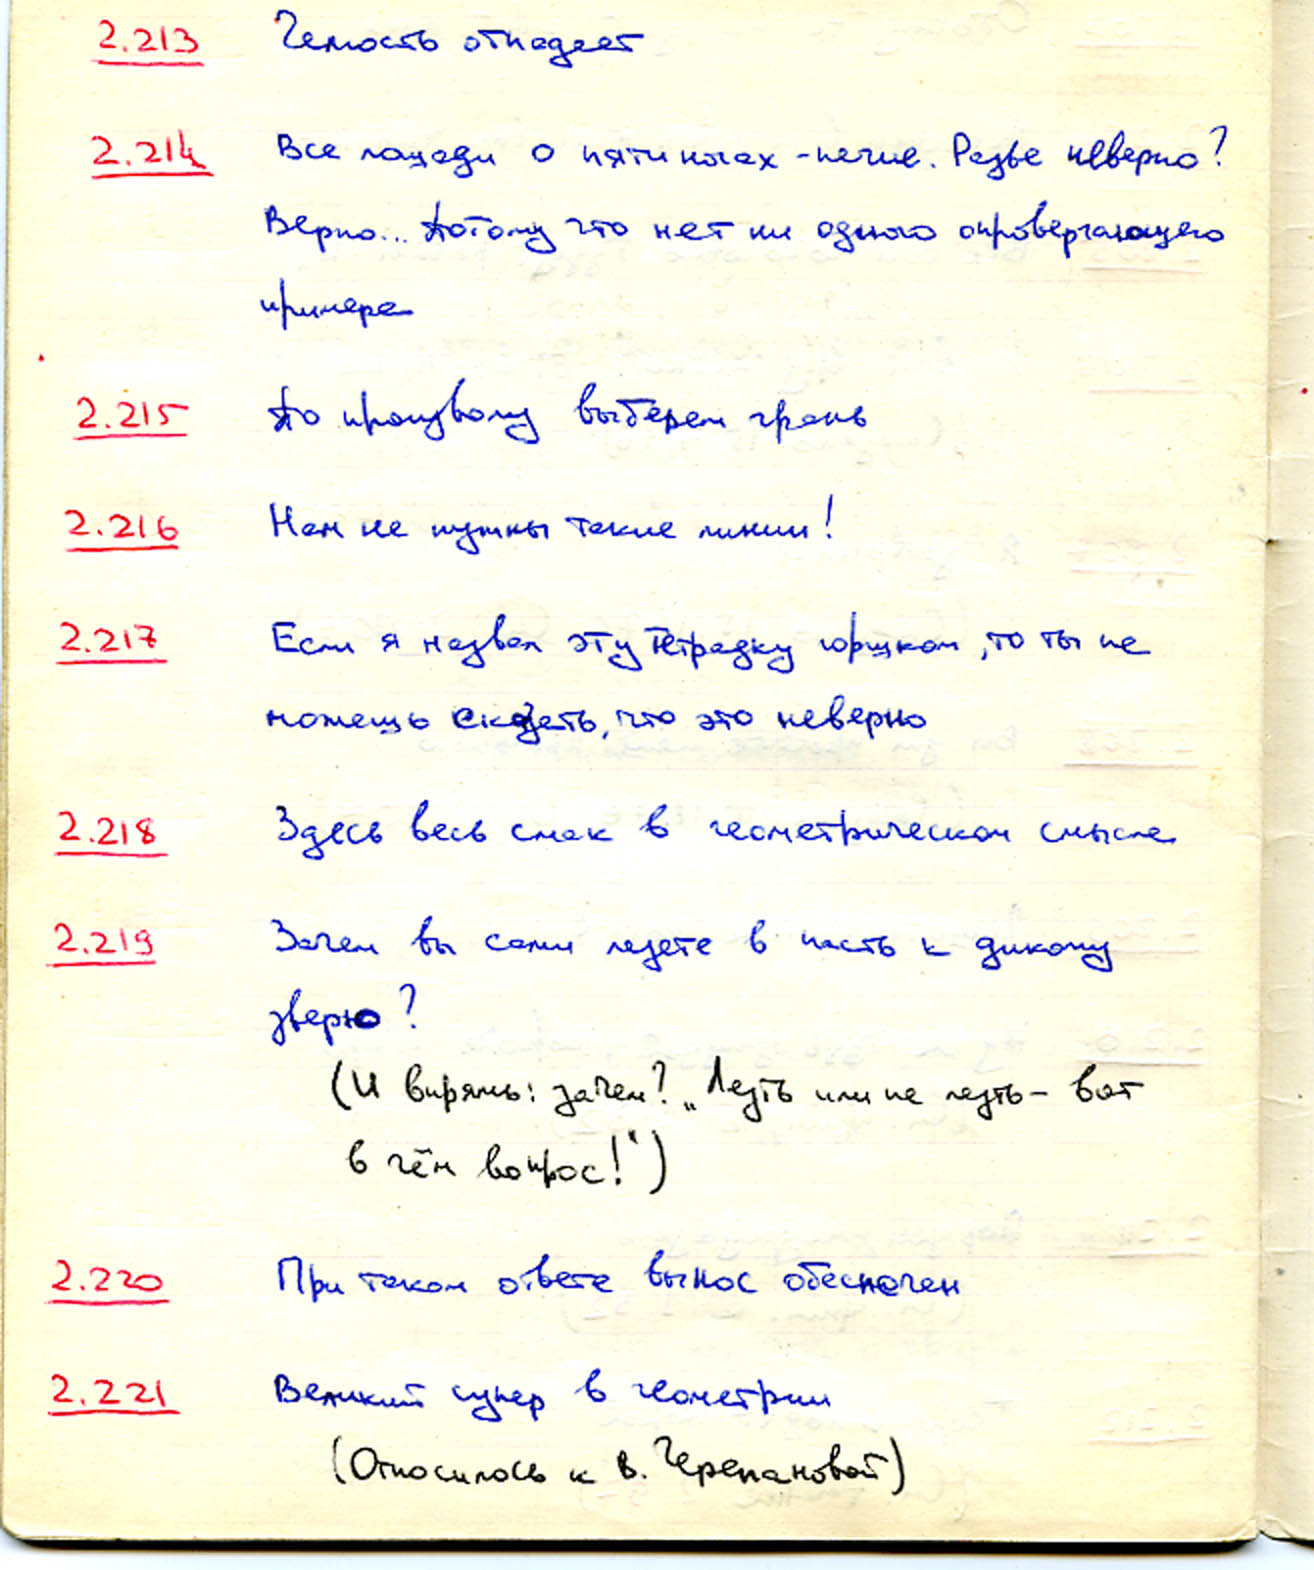 2.213 Челюсть отпадает
2.214 Все лошади о пяти ногах - пегие. Разве неверно?
Верно... потому что нет ни одного опровергающего
примера
2.215 По произволу выберем грань
2.216 Нам не нужны такие линии!
2.217 Если я назвал эту тетрадку горшком, то ты не
можешь сказать, что это неверно
2.218 Здесь весь смак в геометрическом смысле
2.219 Зачем вы сами лезете в пасть к дикому
зверю?
(И впрямь: зачем? „Лезть или не лезть - вот
в чём вопрос!“)
2.220 При таком ответе вынос обеспечен
2.221 Великий супер в геометрии
(Относилось к В. Черепановой)